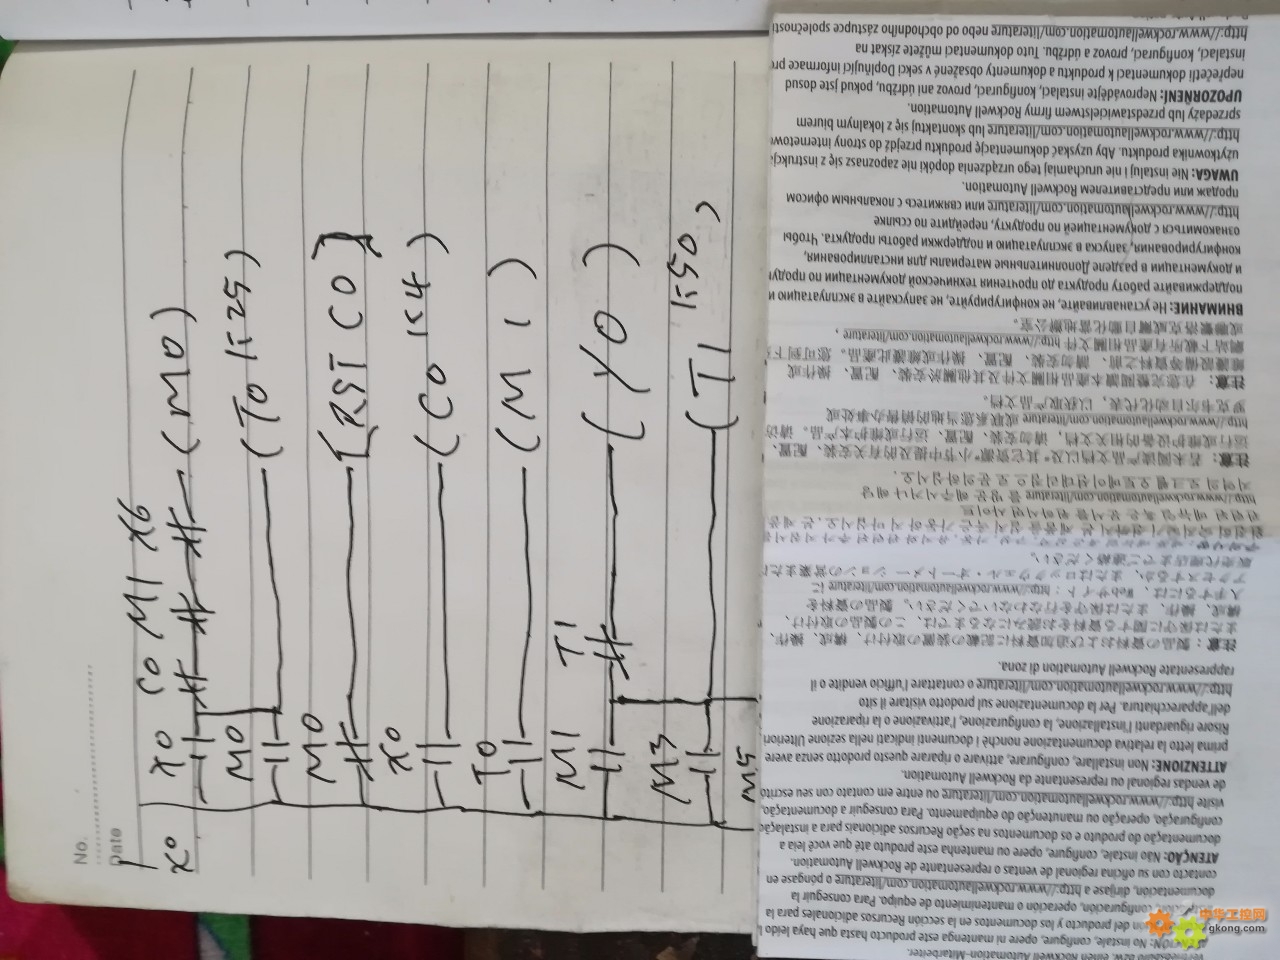 No.
Date
X0
X0 C0 M1 X6
(M0)
M0
(T0 K25)
M0
[RST C0]
X0
(C0 K4)
T0
(M1)
M1 T1
(Y0)
M3
(T1 K50)
M5
http://www.rockwellautomation.com/literature nebo od obchodního zástupce společnosti
instalaci, konfiguraci, provoz a údržbu. Tuto dokumentaci můžete získat na
nepřečetli dokumentaci k produktu a dokumenty obsažené v sekci Doplňující informace pro
UPOZORNĚNÍ: Neprovádějte instalaci, konfiguraci, provoz ani údržbu, pokud jste dosud
sprzedaży lub przedstawicielstwem firmy Rockwell Automation.
http://www.rockwellautomation.com/literature lub skontaktuj się z lokalnym biurem
użytkownika produktu. Aby uzyskać dokumentację produktu przejdź do strony internetowej
UWAGA: Nie instaluj i nie uruchamiaj tego urządzenia dopóki nie zapoznasz się z instrukcją
продаж или представителем Rockwell Automation.
http://www.rockwellautomation.com/literature или свяжитесь с локальным офисом
ознакомиться с документацией по продукту, перейдите по ссылке
конфигурирования, запуска в эксплуатацию и поддержки работы продукта. Чтобы
и документации в разделе Дополнительные материалы для инсталлирования,
поддерживайте работу продукта до прочтения технической документации по продукту
ВНИМАНИЕ: Не устанавливайте, не конфигурируйте, не запускайте в эксплуатацию и
或聯繫洛克威爾自動化當地辦公室。
網站下載所有產品相關文件 http://www.rockwellautomation.com/literature ,
維護設備等資料之前，請勿安裝、配置、操作或維護此產品。您可到下
注意：在您完整閱讀本產品相關文件及其他關於安裝、配置、操作或
罗克韦尔自动化代表，以获取产品文档。
http://www.rockwellautomation.com/literature 或联系您当地的销售办事处或
运行或维护设备的相关文档，请勿安装、配置、运行或维护本产品。请访
注意：若未阅读产品文档以及"其它资源"小节中提及的有关安装、配置、
http://www.rockwellautomation.com/literature
販売代理店までご連絡ください。
アクセスするか、またはロックウェル・オートメーションの営業または
入手するには、Webサイト：http://www.rockwellautomation.com/literature に
構成、操作、または保守を行なわないでください。製品の資料を
または保守に関する資料をお読みになるまでは、この製品の取付け、
注意：製品の資料および追加資料に記載の装置の取付け、構成、操作、
rappresentate Rockwell Automation di zona.
http://www.rockwellautomation.com/literature o contattare l'ufficio vendite o il
dell'apparecchiatura. Per la documentazione sul prodotto visitare il sito
Risore riguardanti l'installazione, la configurazione, l'attivazione o la riparazione
prima letto la relativa documentazione nonché i documenti indicati nella sezione Ulteriori
ATTENZIONE: Non installare, configurare, attivare o riparare questo prodotto senza avere
de vendas regional ou representante da Rockwell Automation.
visite http://www.rockwellautomation.com/literature ou entre em contato com seu escritó
configuração, operação ou manutenção do equipamento. Para conseguir a documentação,
documentação do produto e os documentos na seção Recursos adicionais para a instalação
ATENÇÃO: Não instale, configure, opere ou mantenha este produto até que você leia a
contacto con su oficina regional de ventas o representante de Rockwell Automation.
documentación, diríjase a http://www.rockwellautomation.com/literature o póngase en
configuración, operación o mantenimiento de equipo. Para conseguir la
del producto y los documentos en la sección Recursos adicionales para la
No instale, configure, opere ni mantenga este producto hasta que haya leído l
Rockwell Automation-Mitarbeiter.
中华工控网
gkong.com